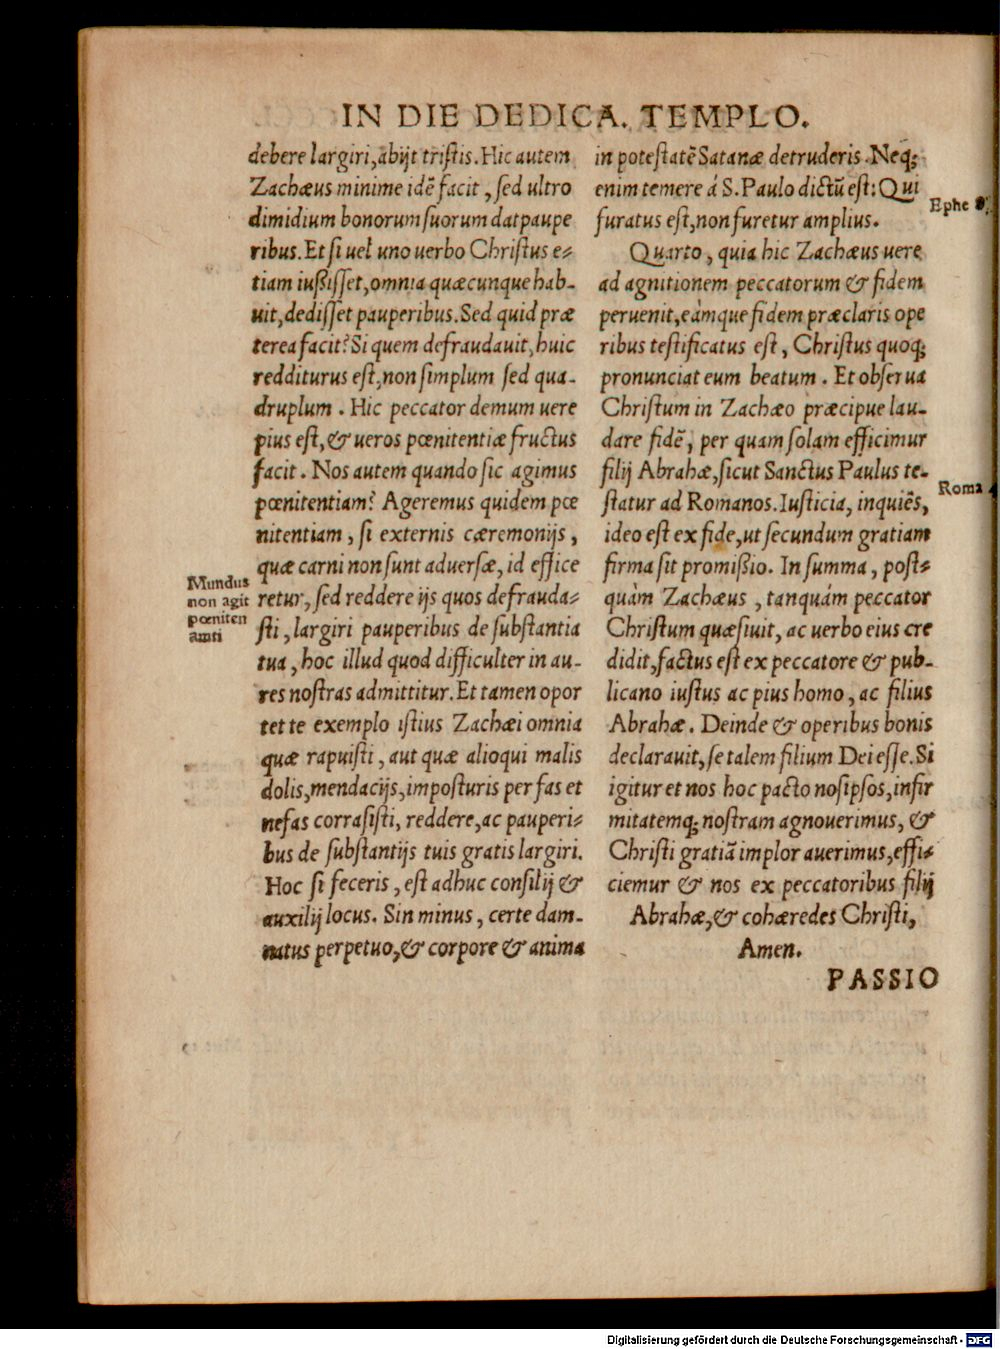 IN DIE DEDICA. TEMPLO.
debere largiri, abijt tristis. Hic autem
Zachæus minime idē facit, sed ultro
dimidium bonorum suorum dat paupe
ribus. Et si uel uno uerbo Christus e-
tiam iußisset, omnia quæcunque hab-
uit, dedisset pauperibus. Sed quid præ
terea facit? Si quem defraudauit, huic
redditurus est, non simplum sed qua-
druplum. Hic peccator demum uere
pius est, & ueros pœnitentiæ fructus
facit. Nos autem quando sic agimus
pœnitentiam? Ageremus quidem pœ
nitentiam, si externis cæremonijs,
quæ carni non sunt aduersæ, id effice
retur, sed reddere ijs quos defrauda-
sti, largiri pauperibus de substantia
tua, hoc illud quod difficulter in au-
res nostras admittitur. Et tamen opor
tet te exemplo istius Zachæi omnia
quæ rapuisti, aut quæ alioqui malis
dolis, mendacijs, imposturis per fas et
nefas corrasisti, reddere, ac pauperi-
bus de substantijs tuis gratis largiri.
Hoc si feceris, est adhuc consilij &
auxilij locus. Sin minus, certe dam-
natus perpetuo, & corpore & anima
Mundus
non agit
pœniten
amti
in potestatē Satanæ detruderis. Neq;
enim temere á S. Paulo dictū est: Qui
furatus est, non furetur amplius.
Quarto, quia hic Zachæus uere
ad agnitionem peccatorum & fidem
peruenit, eámque fidem præclaris ope
ribus testificatus est, Christus quoq;
pronunciat eum beatum. Et obserua
Christum in Zachæo præcipue lau-
dare fidē, per quam solam efficimur
filij Abrahæ, sicut Sanctus Paulus te-
statur ad Romanos. Iusticia, inquiēs,
ideo est ex fide, ut secundum gratiam
firma sit promißio. In summa, post-
quàm Zachæus, tanquám peccator
Christum quæsiuit, ac uerbo eius cre
didit, factus est ex peccatore & pub-
licano iustus ac pius homo, ac filius
Abrahæ. Deinde & operibus bonis
declarauit, se talem filium Dei esse. Si
igitur et nos hoc pacto nosipsos, infir
mitatemq; nostram agnouerimus, &
Christi gratiā implorauerimus, effi-
ciemur & nos ex peccatoribus filij
Abrahæ, & cohæredes Christi,
Amen.
Ephe
Roma 4
PASSIO
Digitalisierung gefördert durch die Deutsche Forschungsgemeinschaft - DFG